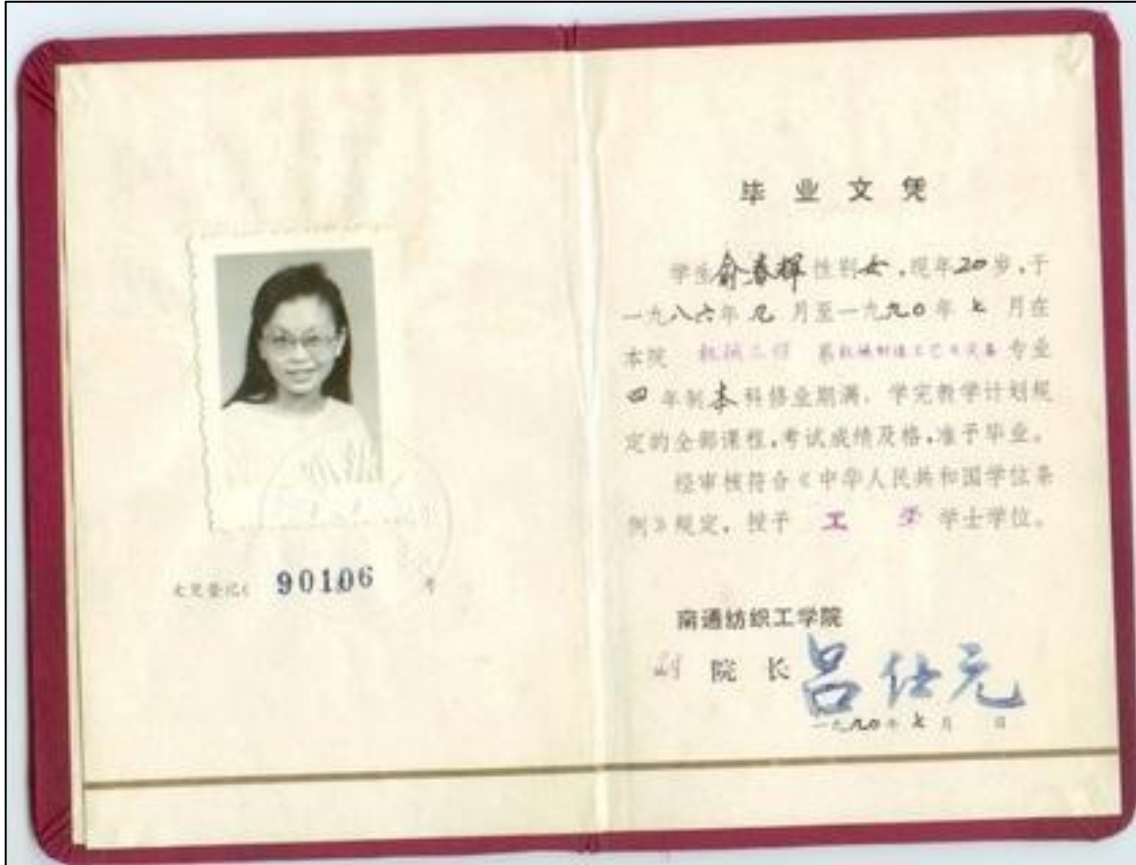 文凭登记 90106 号
毕业文凭
学生俞春辉性别女，现年20岁，于
一九八六年九月至一九九〇年七月在
本院 机械工程 系机械制造工艺及设备专业
四年制本科修业期满，学完教学计划规
定的全部课程，考试成绩及格，准予毕业。
经审核符合《中华人民共和国学位条
例》规定，授予 工 学 学士学位。
南通纺织工学院
副院长 吕仕元
一九九〇年七月 日